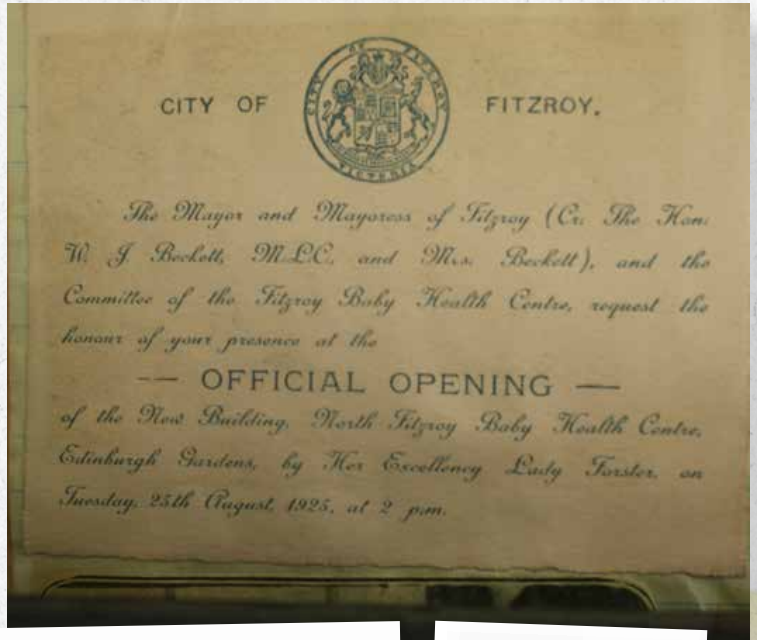 CITY OF FITZROY
VICTORIA
CITY OF FITZROY.
The Mayor and Mayoress of Fitzroy (Cr. The Hon.
W. J. Beckett, M.L.C., and Mrs. Beckett), and the
Committee of the Fitzroy Baby Health Centre, request the
honour of your presence at the
— OFFICIAL OPENING —
of the New Building, North Fitzroy Baby Health Centre,
Edinburgh Gardens, by Her Excellency Lady Forster, on
Tuesday, 25th August, 1925, at 2 p.m.